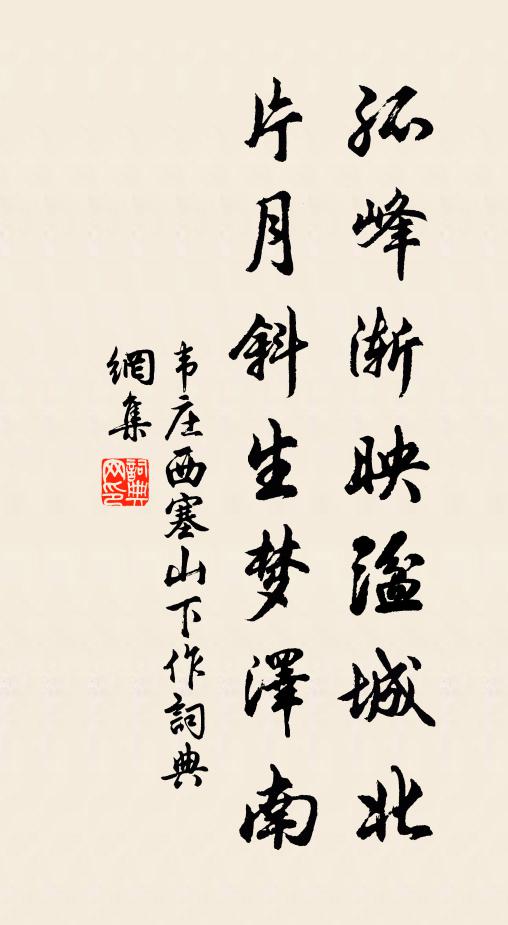 孤峰渐映湓城北
片月斜生梦澤南
韦庄西塞山下作詞典
網集
詞典
网印